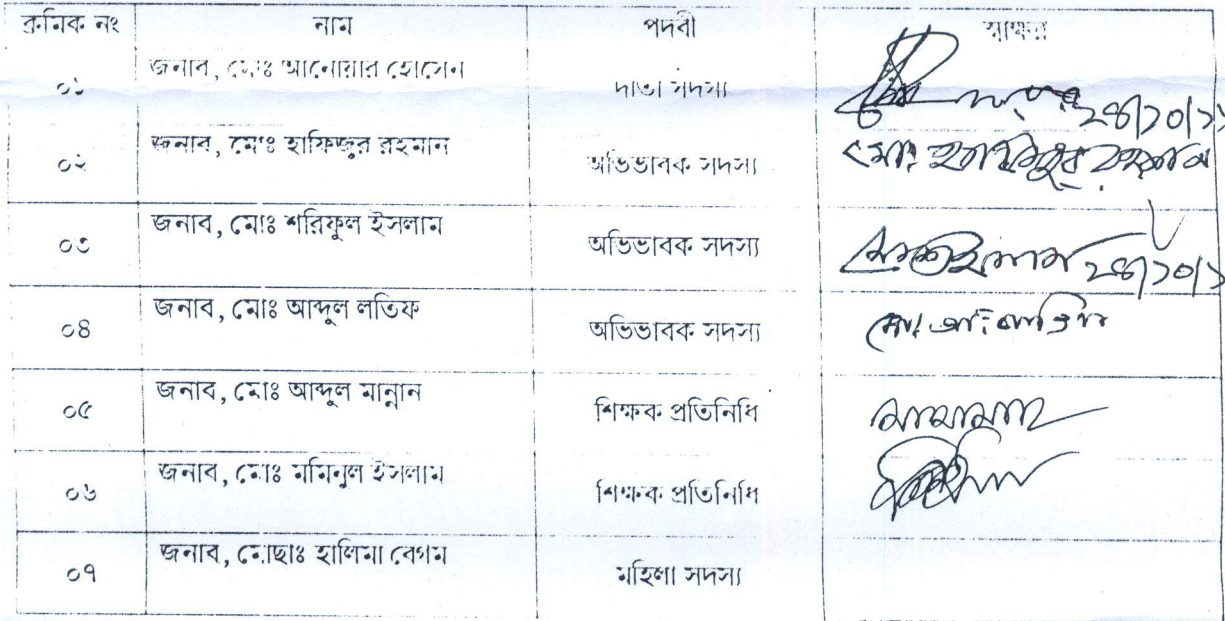 ক্রমিক নং নাম পদবী স্বাক্ষর
০১ জনাব, মোঃ আনোয়ার হোসেন দাতা সদস্য ২৪/১০/১
০২ জনাব, মোঃ হাফিজুর রহমান অভিভাবক সদস্য মোঃ হাফিজুর রহমান
০৩ জনাব, মোঃ শরিফুল ইসলাম অভিভাবক সদস্য ২৪/১০/১
০৪ জনাব, মোঃ আব্দুল লতিফ অভিভাবক সদস্য মোঃ আঃ লতিফ
০৫ জনাব, মোঃ আব্দুল মান্নান শিক্ষক প্রতিনিধি
০৬ জনাব, মোঃ মমিনুল ইসলাম শিক্ষক প্রতিনিধি
০৭ জনাব, মোছাঃ হালিমা বেগম মহিলা সদস্য